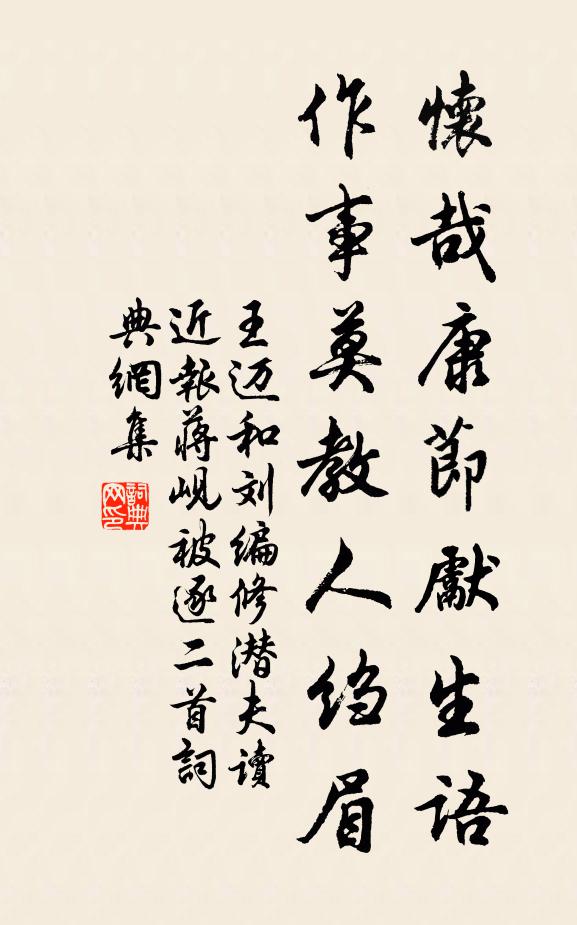 懷哉康節獻生語
作事莫教人绉眉
王迈和刘编修潜夫读
近報蔣峴被逐二首詞
典網集
詞典网印